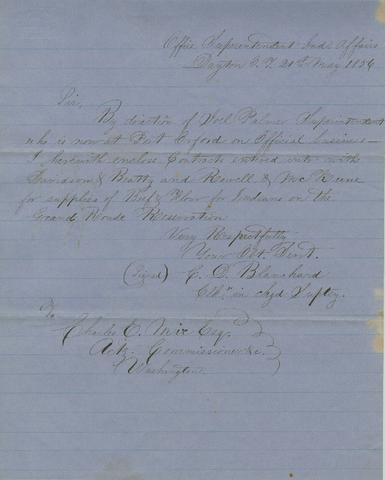 Office Superintendent Ind. Affairs
Dayton O.T. 21st May 1856
Sir,
By direction of Joel Palmer Superintendent
who is now at Port Orford on Official business –
I herewith enclose Contracts entered into with
Davidson & Beatty and Rowell & McKune
for supplies of Beef & Flour for Indians on the
Grand Ronde Reservation
Very Respectfully
Your Obt. Servt.
(Signed) C. D. Blanchard
Clk. in chgd Suptcy.
To
Charles E. Mix Esq.
Actg. Commissioner &c.
Washington